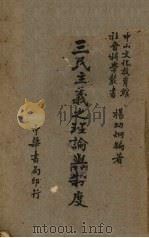 中山文化教育館
社會科學叢書
楊幼炯編著
三民主義之理論與制度
中華書局印行